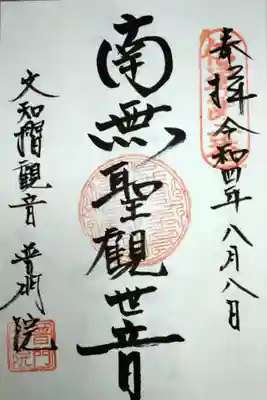 奉拝 令和四年八月八日
南無聖観世音
文知摺観音 普門院
普門院